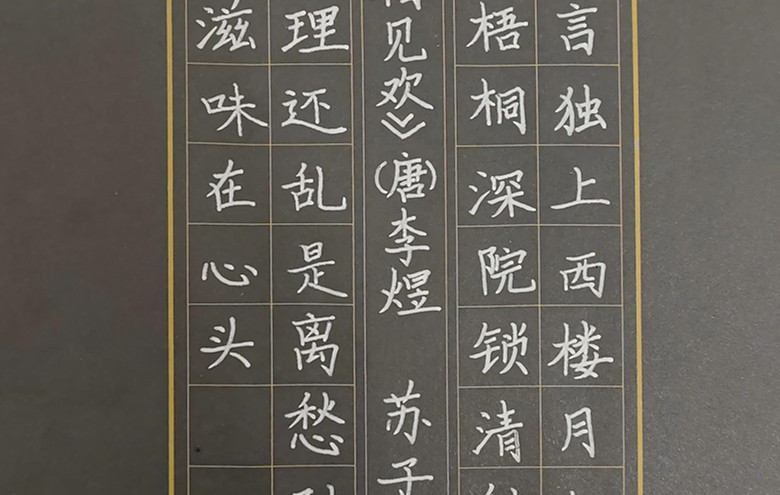 言独上西楼月
梧桐深院锁清
见欢》(唐)李煜 苏子
理还乱是离愁
滋味在心头